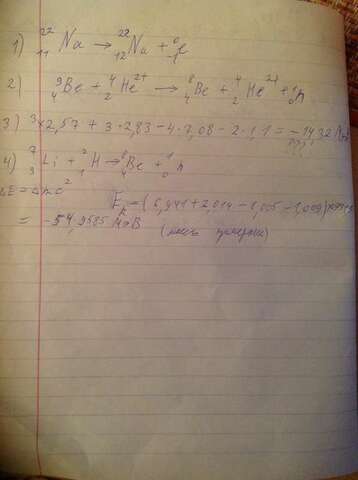 1) ²²₁₁Na → ²²₁₂Na + ⁰₋₁e
2) ⁹₄Be + ⁴₂He²⁺ → ⁸₄Be + ⁴₂He²⁺ + ¹₀n
3) 3·2,57 + 3·2,83 - 4·7,08 - 2·1,1 = -14,32 МэВ
???
4) ⁷₃Li + ²₁H → ⁸₄Be + ¹₀n
ΔE = Δmc²
E = (6,941 + 2,014 - 8,005 - 1,009)
= -54,9585 МэВ (